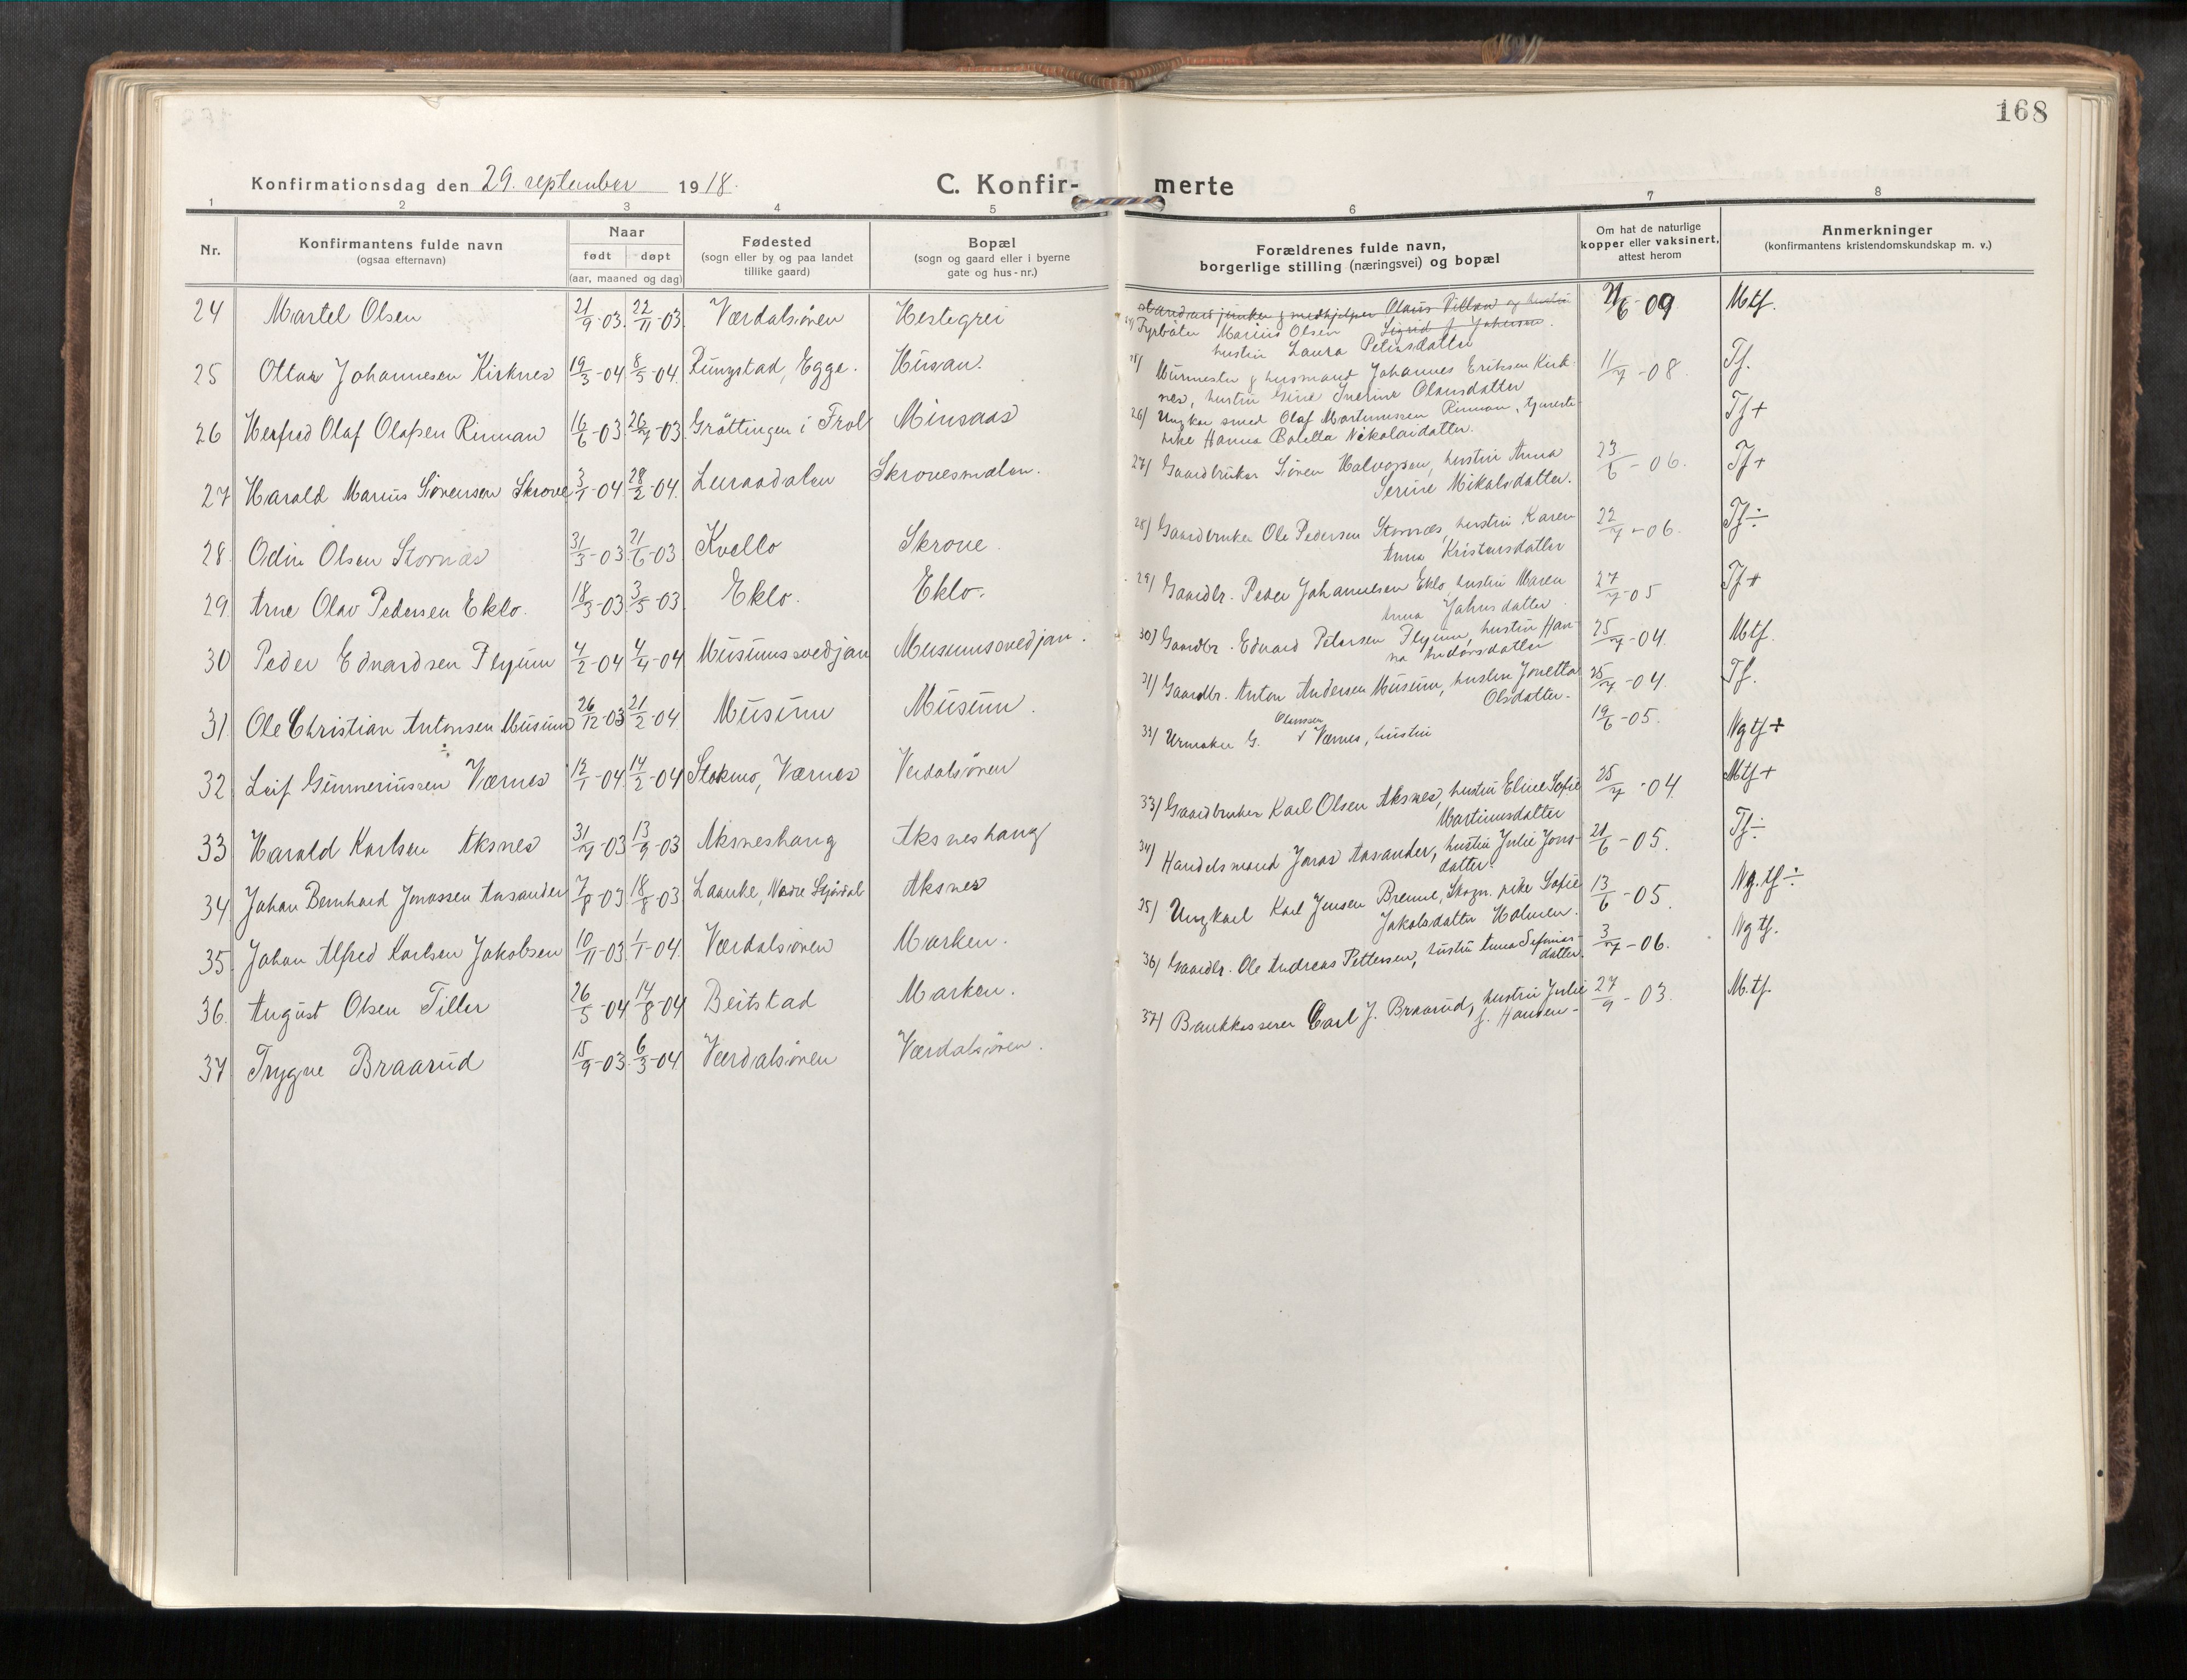 168
Konfirmationsdag den 29. september 1918.
C. Konfir-
merte
1 2 3 4 5 6 7 8
Nr.
Konfirmantens fulde navn
(ogsaa efternavn)
Naar
født døpt
(aar, maaned og dag)
Fødested
(sogn eller by og paa landet
tillike gaard)
Bopæl
(sogn og gaard eller i byerne
gate og hus-nr.)
Forældrenes fulde navn,
borgerlige stilling (næringsvei) og bopæl
Om hat de naturlige
kopper eller vaksinert,
attest herom
Anmerkninger
(konfirmantens kristendomskundskap m. v.)
24 Martel Olsen 21/9-03. 22/11-03 Værdalsøren Hestegrei
25 Ottar Johannesen Kirknes 19/3-04 8/5-04. Rungstad, Egge. Husan.
26 Herfred Olaf Olafsen Rinnan 16/6-03. 26/7-03. Gröttingen i Frol Minsaas
27 Harald Marius Sörensen Skrove 3/1-04 28/2-04. Leiraadalen Skrovesmalen.
28. Odin Olsen Stornæs 31/3-03. 21/6-03 Kvello Skrove.
29. Arne Olav Pedersen Eklo. 18/3-03. 3/5-03. Eklo. Eklo.
30 Peder Edvardsen Flyum 4/2-04 4/4-04 Musumssvedjan Musumssvedjan.
31. Ole Christian Antonsen Musum 26/12-03 21/2-04. Musum Musum.
32. Leif Gunneriussen Værnes 12/1-04. 14/2-04 Stokmo, Værnes Verdalsøren
33 Harald Karlsen Aksnes 31/7-03 13/9-03 Aksneshaug Aksneshaug
34. Johan Bernhard Jonassen Aasander 7/8-03. 18/8-03. Laanke, Nedre Stjördal Aksnes
35. Johan Alfred Karlsen Jakobsen 10/11-03. 1/1-04. Værdalsøren Marken.
36. August Olsen Tiller 26/5-04 14/8-04 Beitstad Marken.
37. Trygve Braarud 15/9-03. 6/3-04. Værdalsøren Værdalsøren.
og medhjelper Olaus Villan og hustru
Sigrid f. Johansen.
24) Fyrböter Marius Olsen
hustru Laura Petersdatter
21/6-09 Mtf.
25) Murmester & husmand Johannes Eriksen Kirk-
nes, hustru Gine Olausdatter
11/7-08. Tf.
26) Ungkar smed Olaf Martinussen Rinnan, tjeneste-
pike Hanna Bolette Nikolaidatter.
Tf+
27) Gaardbruker Sören Halvorsen, hustru Anna
Serine Mikalsdatter.
23/6-06. Tf+
28) Gaardbruker Ole Pedersen Stornæs, hustru Karen
Anna Kristensdatter
22/7-06. Tf÷
29) Gaardbr. Peder Johannesen Eklo, hustru Maren
Anna Johnsdatter
27/7-05 Tf+
30) Gaardbr. Edvard Petersen Flyum, hustru Han-
na Andorsdatter
25/7-04. Mtf.
31) Gaardbr. Anton Andersen Musum, hustru Jonetta
Olsdatter.
25/7-04. Tf.
32) Urmaker G. Olausen Værnes, hustru
19/6-05. Ngtf+
33) Gaardbruker Karl Olsen Aksnes, hustru Eline Sofie
Martinusdatter
25/7-04. Mtf+
34) Handelsmand Jonas Aasander, hustru Julie Jons-
datter.
21/6-05. Tf÷
35) Ungkarl Karl Jensen Brenne, Skogn. pike Sofie
Jakobsdatter Holmen.
13/6-05. Ng.tf÷
36) Gaardbr. Ole Andreas Pettersen, hustru Anna Sefanias-
datter.
3/7-06. Ngtf.
37) Bankkasserer Carl J. Braarud, hustru Julie
f. Hansen-
27/9-03. M.tf.